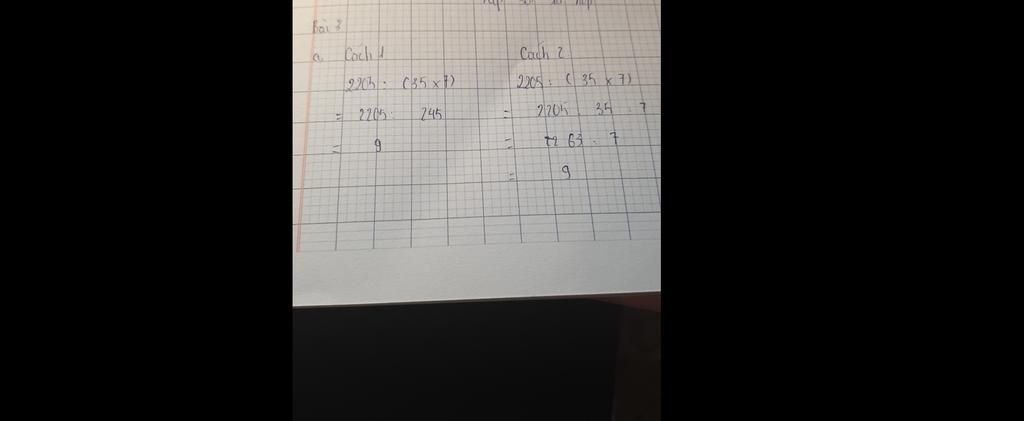 Bài 3
a. Cách 1
2205 : (35 x 7)
= 2205 : 245
= 9
Cách 2
2205 : (35 x 7)
= 2205 : 35 : 7
= 63 : 7
= 9